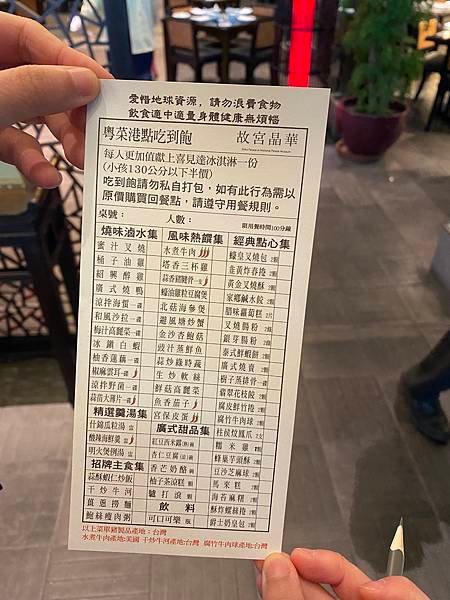 愛惜地球資源，請勿浪費食物
飲食適中適量身體健康無煩惱
粵菜港點吃到飽
故宮晶華
每人更加值獻上喜見達冰淇淋一份
(小孩130公分以下半價)
吃到飽請勿私自打包，如有此行為需以
原價購買回餐點，請遵守用餐規則。
桌號：
人數：
限用餐時間100分鐘
燒味滷水集
蜜汁叉燒
桶子油雞
紹興醉雞
廣式燒鴨
涼拌海蜇一碟
和風沙拉一碟
梅汁高麗菜一碟
冰鎮白蝦
柚香蓮藕一碟
椒麻雲耳一碟
涼拌野菌一碟
蒜苗大薄片一碟
精選羹湯集
什錦瓜粒湯
酸辣海鮮羹
明火煲例湯
招牌主食集
蒜酥蝦仁炒飯
干炒牛河
薑蔥撈麵
鮑絲瘦肉粥
風味熱饌集
水煮牛肉
塔香三杯雞
蒜香豬腱骨
蠔油雞粒豆腐煲
北菇海參煲
避風塘炒蟹
金沙杏鮑菇
豉汁蒸鮮魚
蒜炒綠時蔬
生炒軟絲
鮮菇高麗菜
魚香茄子
宮保皮蛋
廣式甜品集
紅豆西米露(熱)
杏仁豆腐
香芒奶酪
柚子茶涼糕
驢打滾
飲料
可口可樂
經典點心集
蠔皇叉燒包
韭黃炸春捲
黃金叉燒酥
家鄉鹹水餃
臘味蘿蔔糕
叉燒腸粉
銀芽腸粉
泰式鮮蝦餅
廣式燒賣
樹子蒸排骨
翡翠花枝餃
腐皮鮮竹捲
腐竹牛肉球
柱侯炆鳳爪
糯米雞
蜂巢芋頭酥
豆沙芝麻球
馬來糕
海苔麻糬
酥炸螺絲捲
爵士奶皇包
以上菜單豬製品產地：台灣
水煮牛肉產地:美國 干炒牛河產地:台灣 腐竹牛肉球產地:台灣